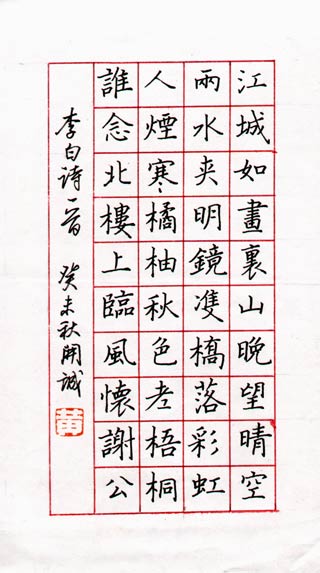 江城如畫裏山晚望晴空
兩水夾明鏡雙橋落彩虹
人煙寒橘柚秋色老梧桐
誰念北樓上臨風懷謝公
李白诗一首 癸未秋開诚
黄